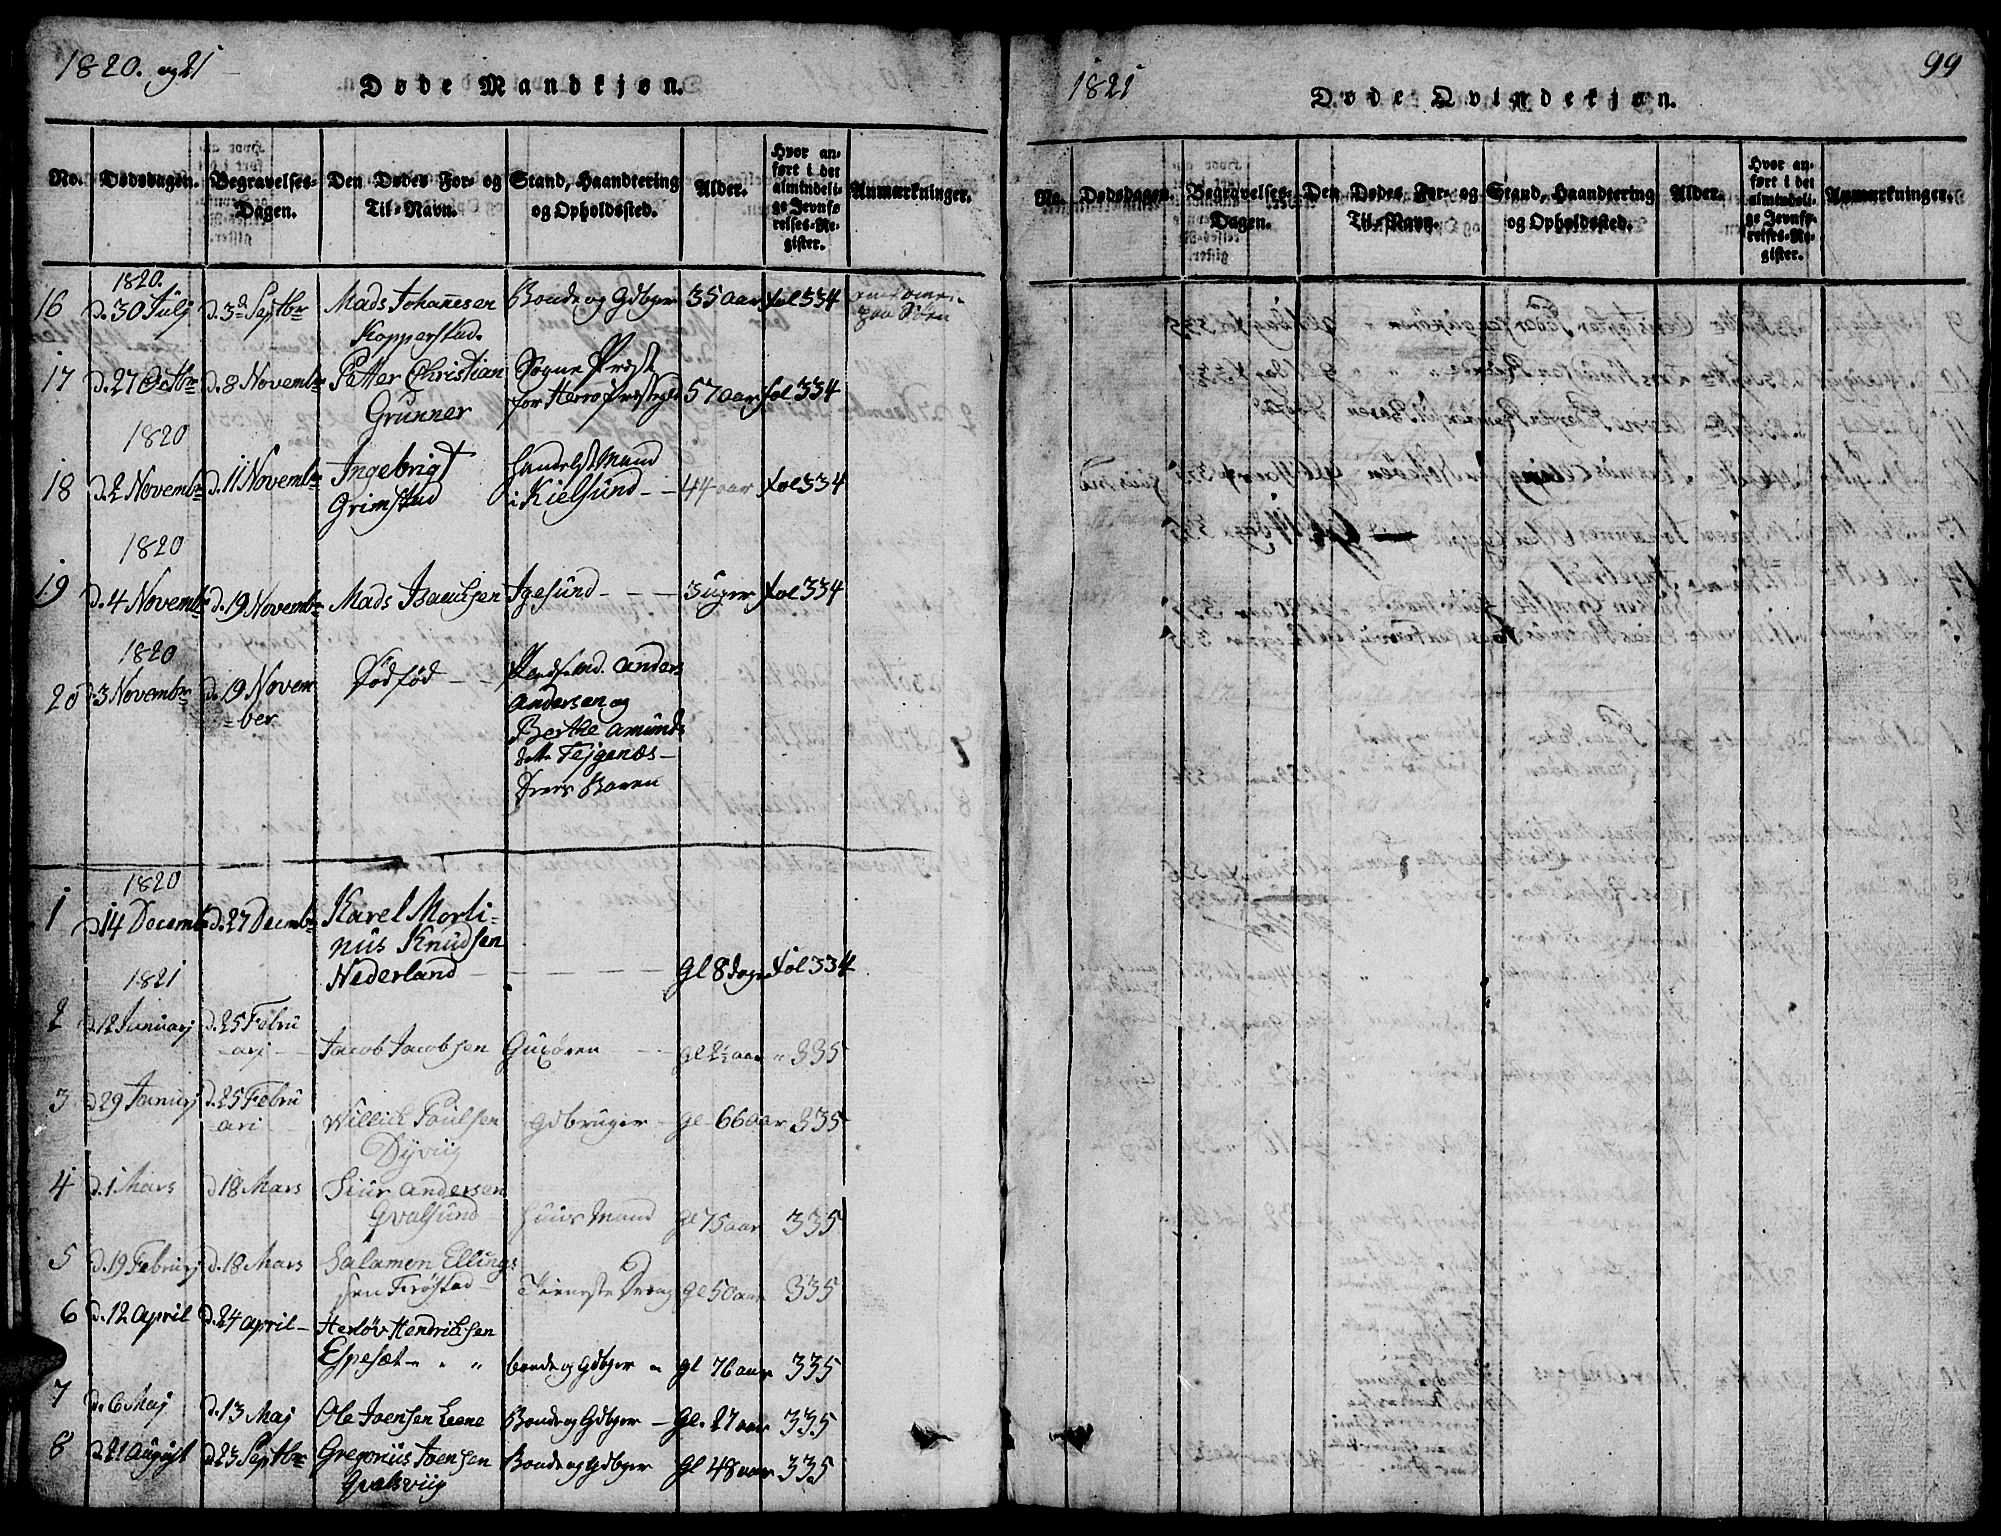 1820. og 21
Døde Mandkjøn.
No.
Dødsdagen.
Begravelses-
Dagen.
Den Dødes For- og
Til-Navn.
Stand, Haandtering
og Opholdssted.
Alder.
Hvor an-
ført i det
almindeli-
ge Jevnfø-
relses-Re-
gister.
Anmærkninger.
1820.
16 d. 30 Julj d. 3d Septbr Mads Johannesen Bonde og Gdbger 35 aar fol 334
Kopperstad. paa Søen
17 d. 27 Octbr d. 8 Novembr Petter Christian Sogne Præst
Grunner for Herrø Præstegld 57 aar fol 334
1820
18 d. 2 Novembr d. 11 Novembr Ingebrigt Handelsmand
Grimstad i Kielsund 44 aar fol 334
1820
19 d. 4 Novembr d. 19 Novembr Mads Isachsen Igesund 3 uger fol 334
1820
20 d. 3 Novembr d. 19 Novem Dødfød Anders
ber Andersen og
Berthe Amunds
datter Tejgenæs
Deres Baren
1820
1 d. 14 Decemb d. 27 Decembr Karel Morti-
nus Knudsen
Nederland Gl 8 dage fol 334
1821
2 d. 12 Januarj d. 25 Febru
arj Jacob Jacobsen Guxøren gl 2½ aar " 335
3 d. 29 Januarj d. 25 Febru
ari Willich Paulsen Gdbruger gl 66 aar 335
Dyviig
4 d. 1 Mars d. 18 Mars Siur Andersen
Qvalsund Huus Mand gl 75 aar 335
5 d. 19 Februarj d. 18 Mars Salamon Ellings
sen Frøstad Tieneste Dreng gl 50 aar 335
6 d. 12 April d. 24 April Herløv Hendrichsen
Espesæt bonde og Gdbger gl 76 aar 335
7 d. 6 Maj d. 13 Maj Ole Joensen Leene Bonde og Gdbger gl. 27 aar 335
8 d. 21 August d. 23 Septbr Gregorius Joensen Bonde og Gdbger gl 48 aar 335
Qvalsviig
1821
Døde Qvindekjøn.
99
No.
Dødsdagen.
Begravelses-
Dagen.
Den Dødes For- og
Til-Navn.
Stand, Haandtering
og Opholdssted.
Alder.
Hvor an-
ført i det
almindeli-
ge Jevnfø-
relses-Re-
gister.
Anmærkninger.